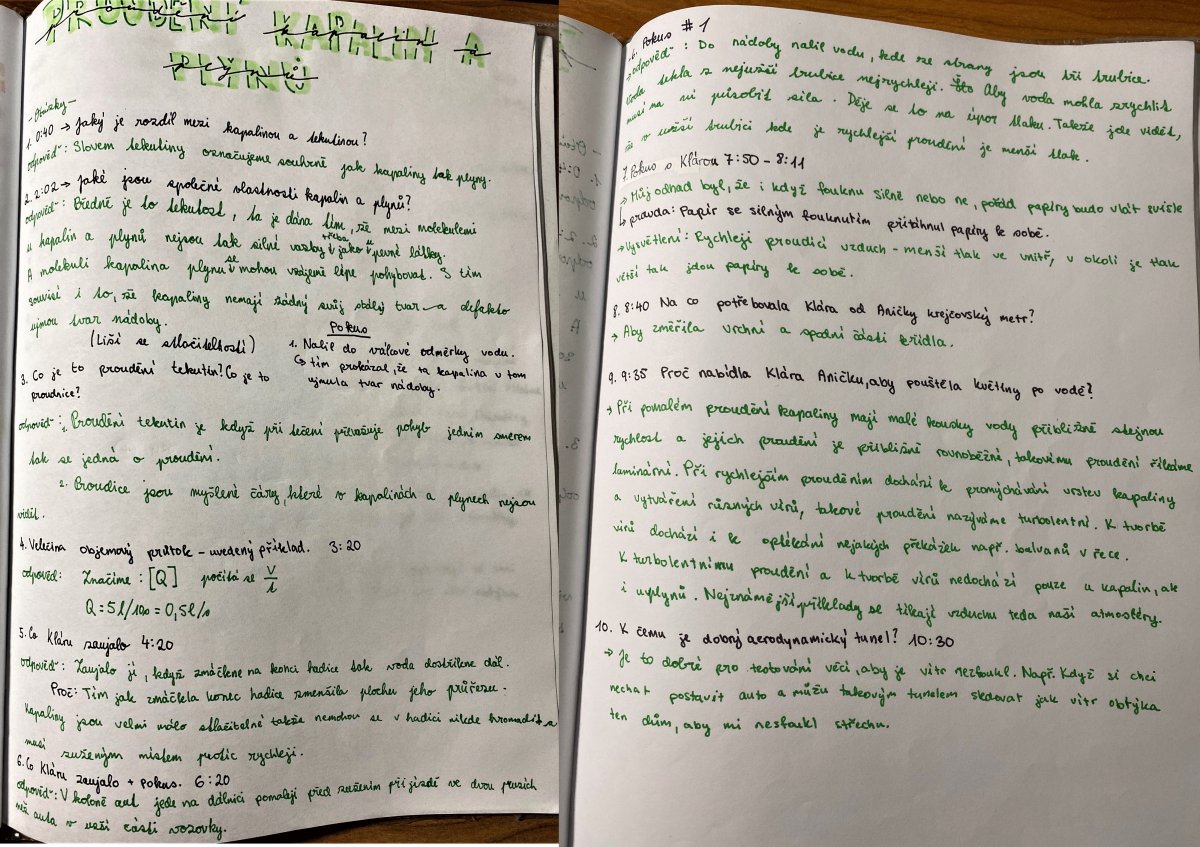 PROUDĚNÍ KAPALIN A
PLYNŮ
- Otázky -
1. 0:40 → Jaký je rozdíl mezi kapalinou a tekutinou?
odpověď: Slovem tekutiny označujeme souhrně jak kapaliny tak plyny.
2. 2:02 → Jaké jsou společné vlastnosti kapalin a plynů?
odpověď: Předně je to tekutost, ta je dána tím, že mezi molekulemi
u kapalin a plynů nejsou tak silné vazby třeba jako u pevné látky.
A molekuli kapalina plynu se mohou vzájemě lépe pohybovat. S tím
souvisí i to, že kapaliny nemají žádný svůj stálý tvar a defakto
ujmou tvar nádoby.
(Liší se stlačitelností)
Pokus
1. Nalil do válcové odměrky vodu.
↳ tím prokázal, že ta kapalina v tom
ujmula tvar nádoby.
3. Co je to proudění tekutin? Co je to
proudnice?
odpověď: 1. Proudění tekutin je když při tečení převažuje pohyb jedním směrem
tak se jedná o proudění.
2. Proudice jsou myšlené čáry, které v kapalinách a plynech nejsou
vidět.
4. Veličina objemový průtok - uvedený příklad. 3:20
odpověď: Značíme: [Q] počítá se V/t
Q = 5l/10s = 0,5l/s
5. Co Kláru zaujalo 4:20
odpověď: Zaujalo jí, když zmáčkne na konci hadice tak voda dostříkne dál.
Proč: Tím jak zmáčkla konec hadice zmenšila plochu jeho průřezu.
Kapaliny jsou velmi málo stlačitelné takže nemohou se v hadici nikde hromadit a
musí zuženým místem protéc rychleji.
6. Co Kláru zaujalo + pokus. 6:20
odpověď: V koloně aut jede na dálnici pomaleji před zužením při jízdě ve dvou pruzích
než auta v užší části vozovky.
6. Pokus #1
→ odpověď: Do nádoby nalil vodu, kde ze strany jsou tři trubice.
Voda tekla z nejužší trubice nejrychleji. Aby voda mohla zrychlit
musí na ni působit síla. Děje se to na úpor tlaku. Takže jde vidět,
že v užší trubici kde je rychlejší proudění je menší tlak.
7. Pokus s Klárou 7:50 - 8:11
→ Můj odhad byl, že i když fouknu silně nebo ne, pořád papíry budo vlát svisle
↳ pravda: Papír se silným fouknutím přitáhnul papíry k sobě.
→ Vysvětlení: Rychleji proudící vzduch - menší tlak ve vnitř, v okolí je tlak
větší tak jdou papíry k sobě.
8. 8:40 Na co potřebovala Klára od Aničky krejčovský metr?
→ Aby změřila vrchní a spodní části křídla.
9. 9:35 Proč nabídla Klára Aničku, aby pouštěla květiny po vodě?
→ Při pomalém proudění kapaliny mají malé kousky vody přibližně stejnou
rychlost a jejich proudění je přibližně rovnoběžné, takovému proudění říkáme
laminární. Při rychlejším prouděním dochází k promíchávání vrstev kapaliny
a vytváření různých vírů, takové proudění nazýváme turbolentní. K tvorbě
vírů dochází i k obtékání nejakých překážek např. balvanů v řece.
K turbolentnímu proudění a k tvorbě vírů nedochází pouze u kapalin, ale
i u plynů. Nejznámější příklady se týkají vzduchu teda naší atmosféry.
10. K čemu je dobrý aerodynamický tunel? 10:30
→ Je to dobré pro testování věcí, aby je vítr nezfoukl. Např. Když si chci
nechat postavit auto a můžu takovým tunelem sledovat jak vítr obtýka
ten dům, aby mi nesfoukl střechu.